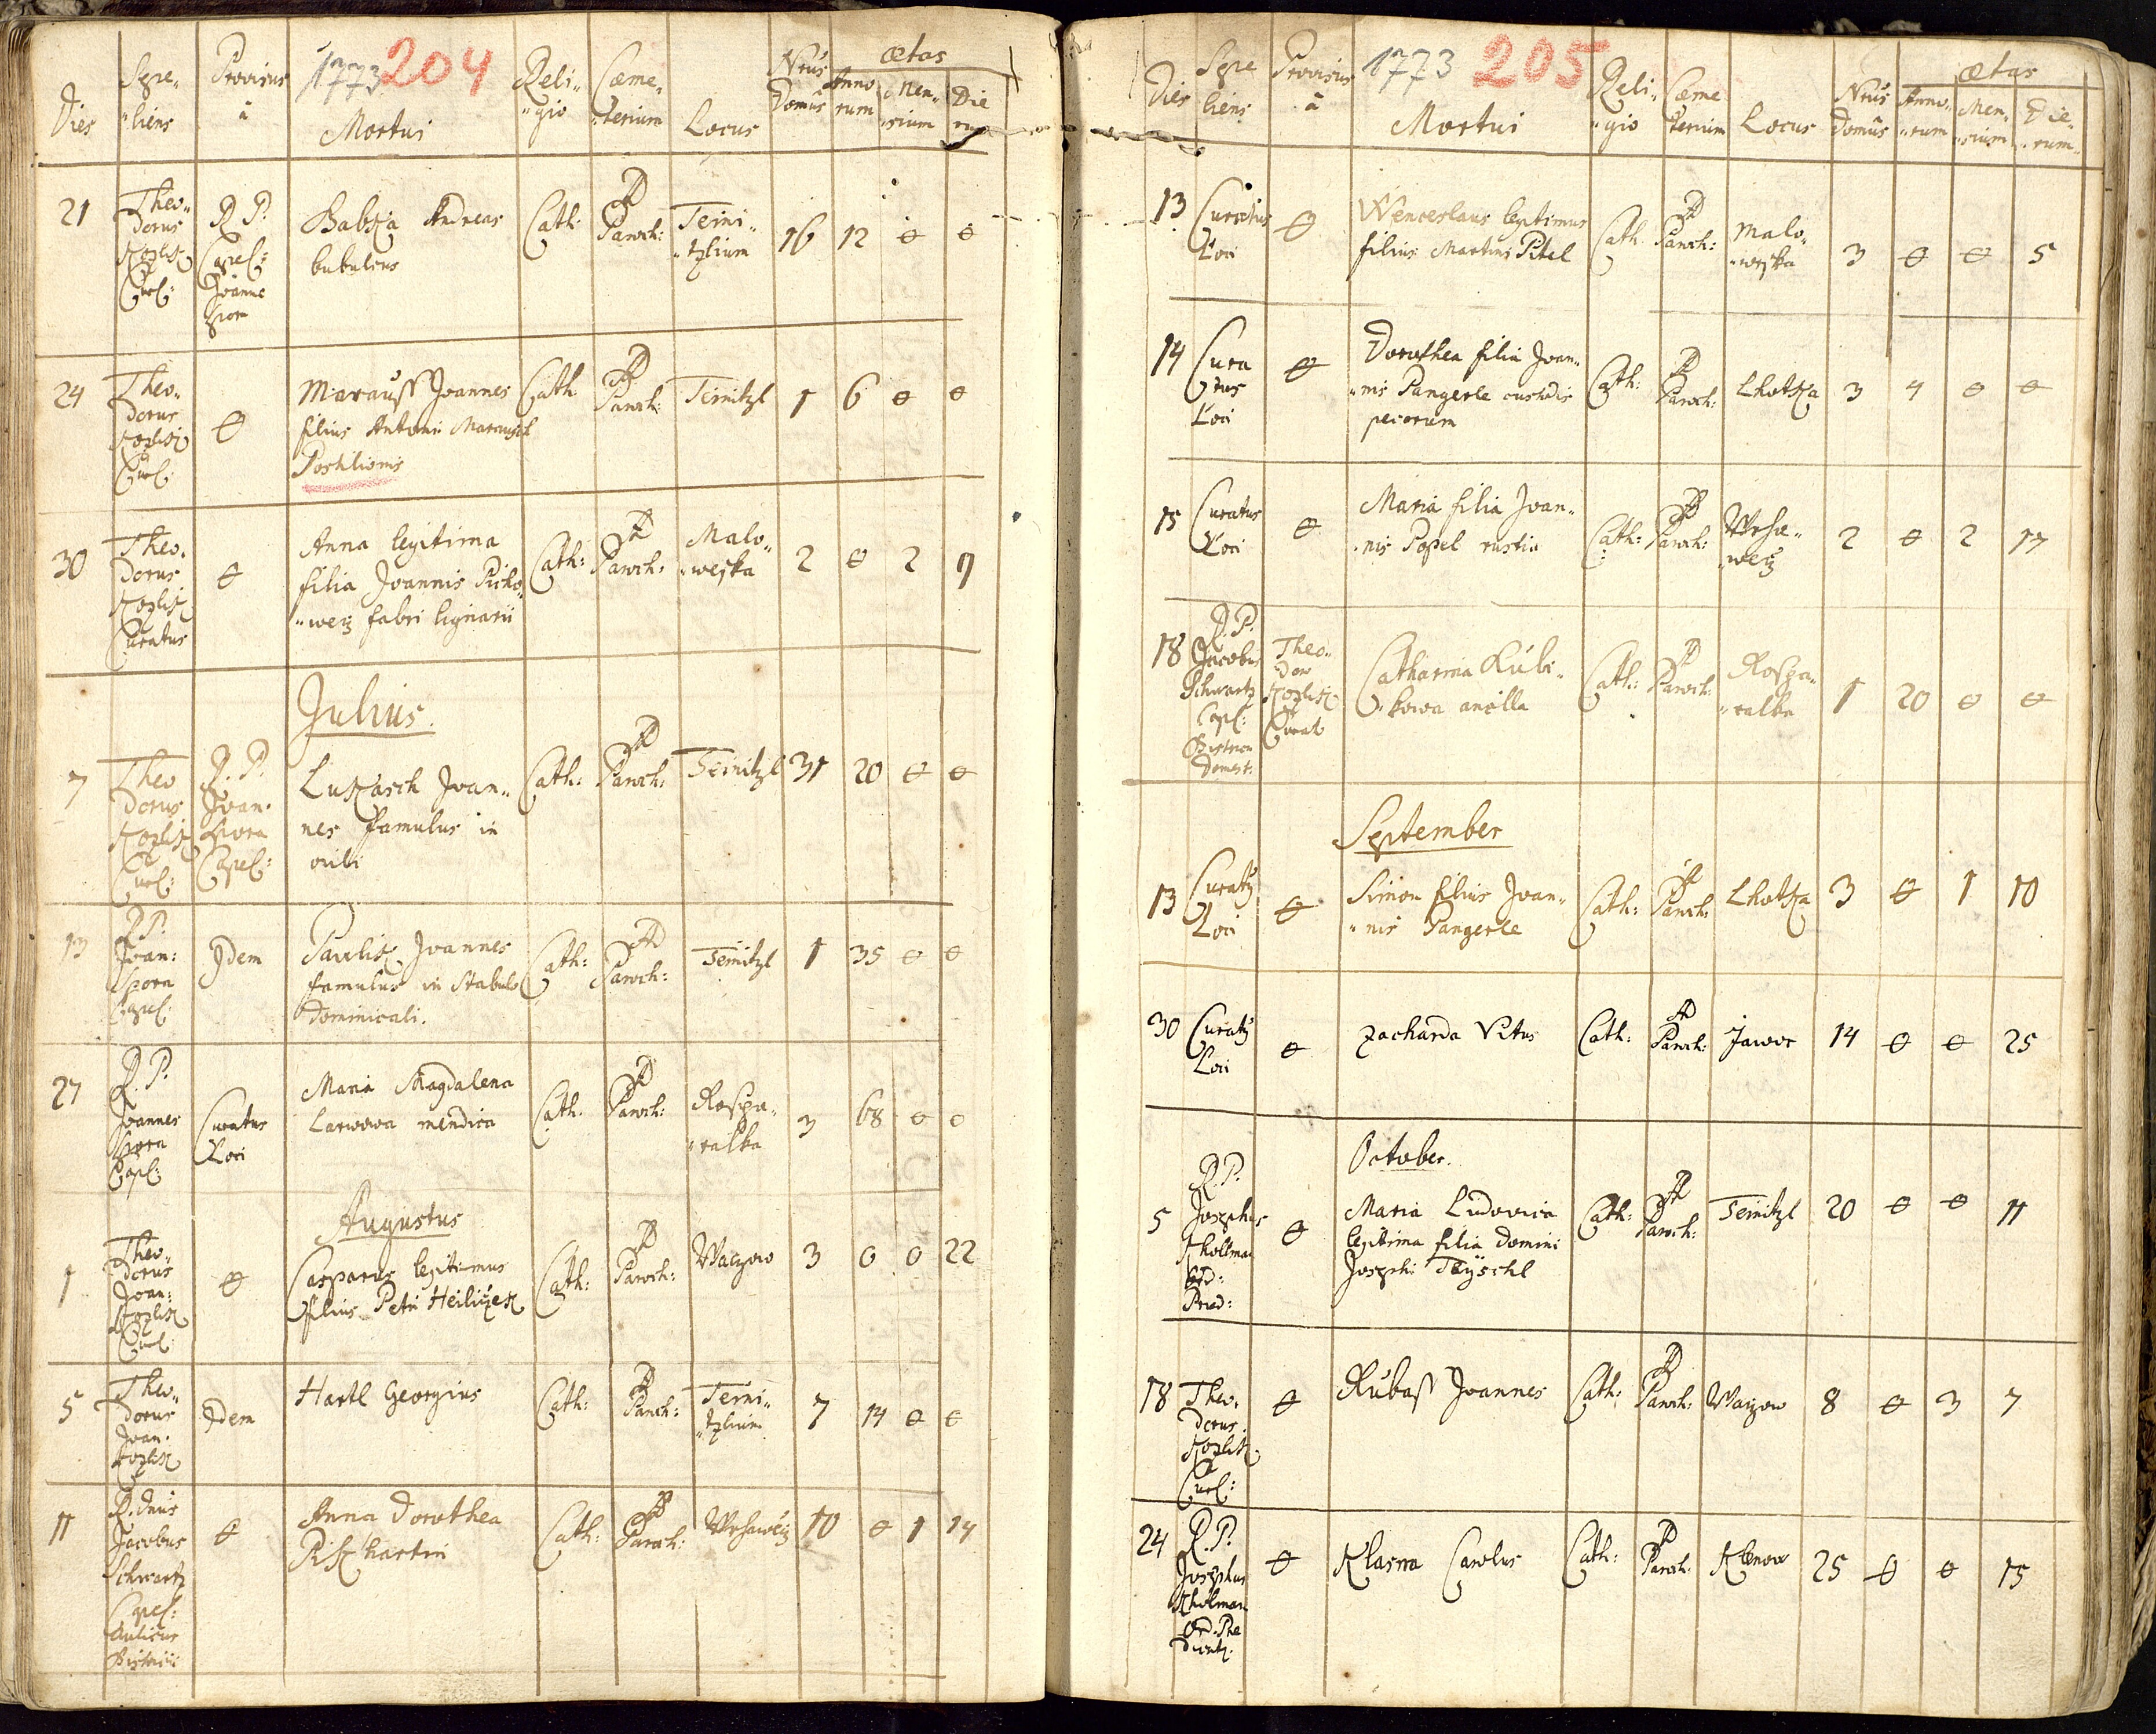 1773 204
Dies
Sepe-
liens
Provisus
à
Mortui
Reli-
gio
Cæme-
terium
Locus
Nrus
Domus
ætas
Anno
rum
Men-
sium
Die
rum
21
Theo-
dorus
Kozlik
Cur:
R. P.
Capel:
Joanne
Babka Andreas
bubulcus
Cath:
Paroch:
Teini-
tzlium
16 12 0 0
24
Theo-
dorus
Kozlik
Cur:
0
Marauss Joannes
filius Antoni Marausch
Postilionis
Cath:
Paroch:
Teinitzl
1 6 0 0
30
Theo-
dorus
Kozlik
Curatus
0
Anna legitima
filia Joannis Picho-
wetz fabri lignarii
Cath:
Paroch:
Malo-
weska
2 0 2 7
Julius.
7
Theo
dorus
Kozlik
Cur:
R. P.
Joan.
Spora
Capel:
Lukasch Joan-
nes famulus in
ovili
Cath:
Paroch:
Teinitzl
31 20 0 0
13
R. P.
Joan:
Spora
Capel:
Idem
Paulik Joannes
famulus in Stabulo
Dominicali.
Cath:
Paroch:
Teinitzl
1 35 0 0
27
R. P.
Joannes
Spora
Capl:
Curatus
Loci
Maria Magdalena
Larwowa mendica
Cath.
Paroch:
Rospa-
ralka
3 68 0 0
Augustus
1
Theo-
dorus
Joan:
Kozlik
Cur:
0
Casparus legitimus
filius Petri Heiliczek
Cath:
Paroch:
Waczow
3 0 0 22
5
Theo-
dorus
Joan.
Kozlik
Idem
Hartl Georgius
Cath:
Paroch:
Teini-
tzlium
7 14 0 0
11
R. Dnus
Jacobus
Schwartz
Capel:
Aulicus
0
Anna Dorothea
Cath:
Paroch:
Wrhawetz
10 0 1 14
1773 205
Dies
Sepe
liens
Provisus
à
Mortui
Reli-
gio
Cæme
terium
Locus
Nrus
Domus
ætas
Anno-
rum
Men-
sium
Die-
rum
13
Curatus
Loci
0
Wenceslaus legitimus
filius Martini Pitel
Cath.
Paroch:
Malo-
weska
3 0 0 5
14
Cura
tus
Loci
0
Dorothea filia Joan-
nis Pangerle custodis
pecorum
Cath:
Paroch:
Lhotka
3 4 0 0
15
Curatus
Loci
0
Maria filia Joan-
nis Popel rustici
Cath:
Paroch:
Wrha-
wetz
2 0 2 17
18
R. P.
Jacobus
Schwartz
Capl:
Domest:
Theo-
dor
Kozlik
Curat
Catharina Kubi-
kowa ancilla
Cath:
Paroch:
Rospa-
ralka
1 20 0 0
September
13
Curatg
Loci
0
Simon filius Joan-
nis Pangerle
Cath:
Paroch:
Lhotka
3 0 1 10
30
Curatg
Loci
0
Zacharda Vitus
Cath:
Paroch:
Jawor
14 0 0 25
October.
5
R. P.
Josephus
Kholman
Ord:
Præd:
0
Maria Ludovica
legitima filia Domini
Josephi Teyschl
Cath:
Paroch:
Teinitzl
20 0 0 11
18
Theo-
dorus
Kozlik
Cur:
0
Kubass Joannes
Cath:
Paroch:
Waczow
8 0 3 7
24
R. P.
Josephus
Kholman
0
Klasna Carolus
Cath:
Paroch:
Klenow
25 0 0 15